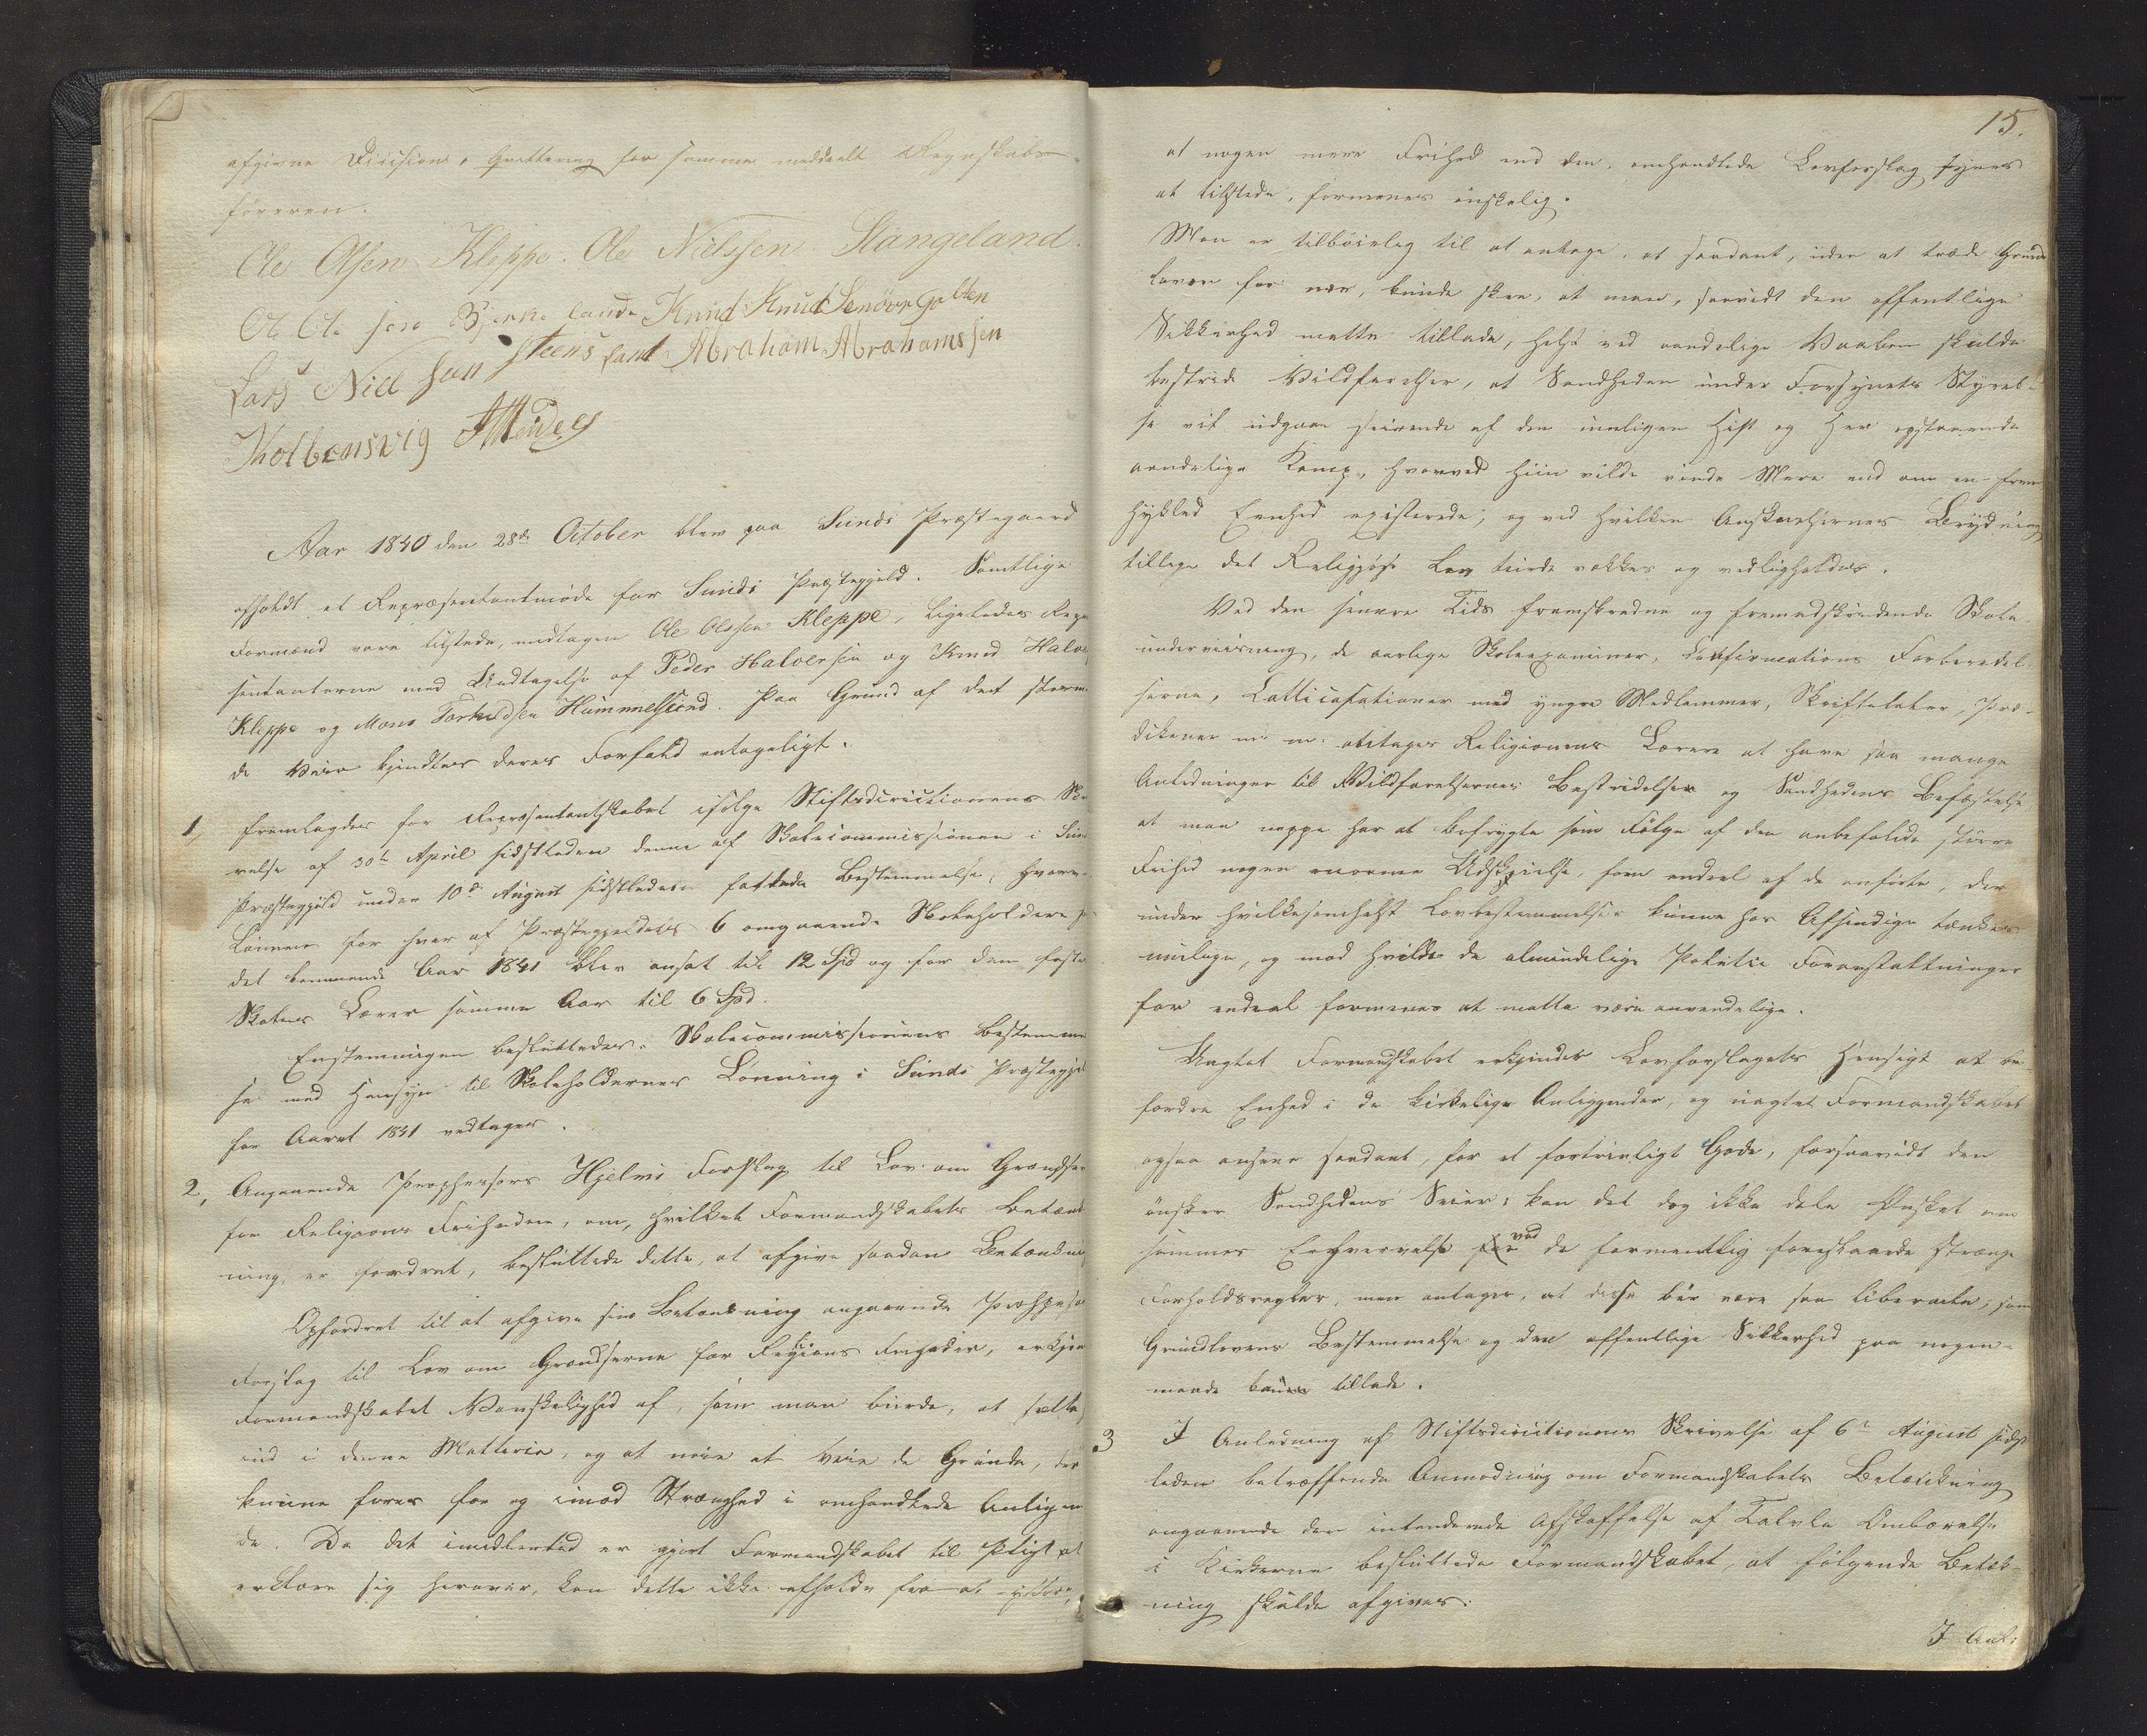 afgivne Decisions, Qvittering for samme meddeelt Regnskabs-
føreren.
Ole Olsen Kleppe. Ole Nielssen Stangeland.
Ole Ole sen Bjerke lande Knud Knud Senøvre Golten
Lars Niel sen Steens land. Abraham Abrahamssen
Kolbensvig
Aar 1840 den 28de October blev paa Sunds Præstegaard
afholdt et Repræsentantmøde for Sunds Præstegjeld. Samtlige
Formænd vare tilstede, undtagen Ole Olssen Kleppe, ligeledes Repræ
sentanterne med Undtagelse af Peder Halversen og Knud Halv
Kleppe og Mons Torkildsen Hummelsund. Paa Grund af det storm
de Veir kjendtes deres Forfald antageligt.
1, Fremlagdes for Repræsentantskabet ifølge Stiftsdirectionens Skri
velse af 30te April sidstleden denne af Skolecommissionen i Sun
Præstegjeld under 10de August sidstleden fattede Bestemmelse, hvor
Lønnen for hver af Præstegjeldets 6 omgaaende Skoleholdere
det kommende Aar 1841 blev ansat til 12 Spd og for den faste
Skoles Lærer samme Aar til 6 Spd.
Enstemmigen besluttedes: Skolecommissionens Bestemmel
se med Hensyn til Skoleholdernes Lønning i Sunds Præstegjel
for Aaret 1841 vedtages.
2, Angaaende Prophessors Hjelms Forslag til Lov om Grændser
for Religions Friheden, om, hvilket Formandskabets Betænk
ning er fordret, besluttede dette, at afgive saadan Betænkning
Opfordret til at afgive sin Betænkning angaaende Prophessor
Forslag til Lov om Grændserne for Religions Friheder, erkjen
Formandskabet Vanskelighed af, som man burde, at sætte
ind i denne Matterie, og at nøie at veie de Grunde, der
kunne føres for og imod Strænghed i omhandlede Anliggen
de. Da det imidlertid er gjort Formandskabet til Pligt at
erklære sig herover, kan dette ikke afholde fra at yttre,
15.
at nogen mere Frihed end den omhandlede Lovforslag synes
at tilstede, formenes ønskelig.
Man er tilbøielig til at antage, at saadant, uden at træde Grund
loven for nær, kunde skee, at man, saavidt den offentlige
Sikkerhed maatte tillade, helst ved aandelige Vaaben skulde
bestride Vildfarelser, at Sandheden under Forsynets Styrel-
se vil udgaae seirende af den muligen hist og her opstaaende
aandelige Kamp, hvorved hiin vilde vinde Mere end om en frem
hyklet Eenhed existerede, og ved hvilken Anskuelsernes Brydning
tillige det Religiøse Lev turde vækkes og vedligeholdes.
Ved den senere Tids fremskredne og fremadskridende Skole
underviisning, de aarlige Skoleexaminer, Confirmations Forberedel-
serne, Cattisasationer med yngre Medlemmer, Skriftetaler, Præ-
dikener m. m. antages Religionens Lærere at have saa mange
Anledninger til Vildfarelsernes Bestridelser og Sandhedens Befæstelse
at man neppe har at befrygte som Følge af den anbefalede større
Frihed nogen enorme Udskeielse, som endeel af de anførte, der
under hvilkesomhelst Lovbestemmelser kunne hos Afsindige tænkes
mulige, og mod hvilke de almindelige Politie Foranstaltninger
for endeel formenes at maatte være anvendelige.
Uagtet Formandskabet erkjender Lovforslagets Hensigt at be
fordre Eenhed i de kirkelige Anliggender, og uagtet Formandskabet
ogsaa ansees saadant, for et fortrinligt Gode, forsaavidt den
ønsker Sandhedens Seier: kan det dog ikke dele Ønsket om
sammes Erhvervelse ved de formentlig foreslaaede strænge
Forholdsregler, men antager, at disse bør være saa liberale, som
Grundlovens Bestemmelse og den offentlige Sikkerhed paa nogen-
maade kunne tillade.
3 I Anledning af Stiftsdirectionens Skrivelse af 6te August sidst
leden betræffende Anmodning om Formandskabets Betænkning
angaaende den intenderede Afskaffelse af Tavle Ombærelse
i Kirkerne besluttede Formandskabet, at følgende Betæk-
ning skulde afgives:
I Anl: